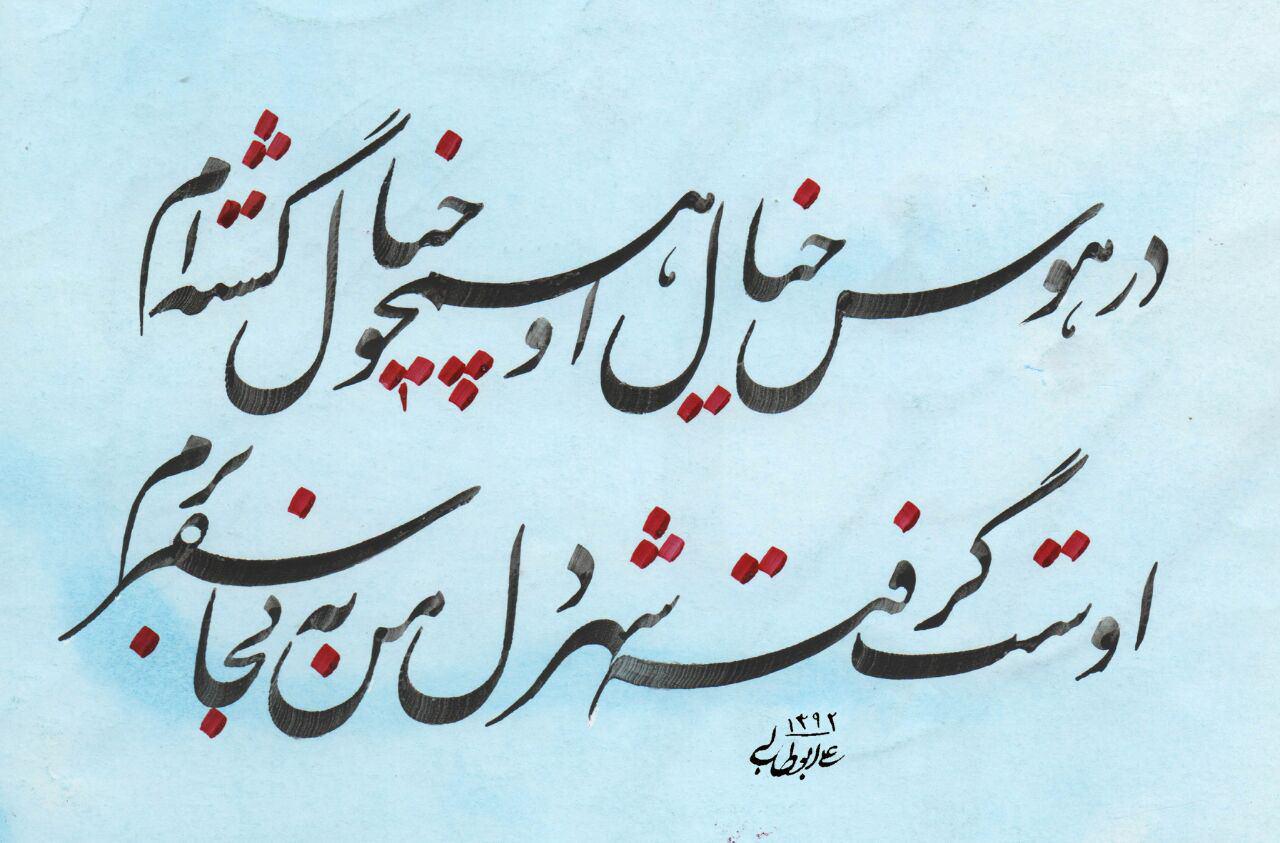 در هوس خیال او همچو خیال گشته ام
اوست گرفته شهر دل من به کجا سفر برم
۱۳۹۲
ع ابوطالبی